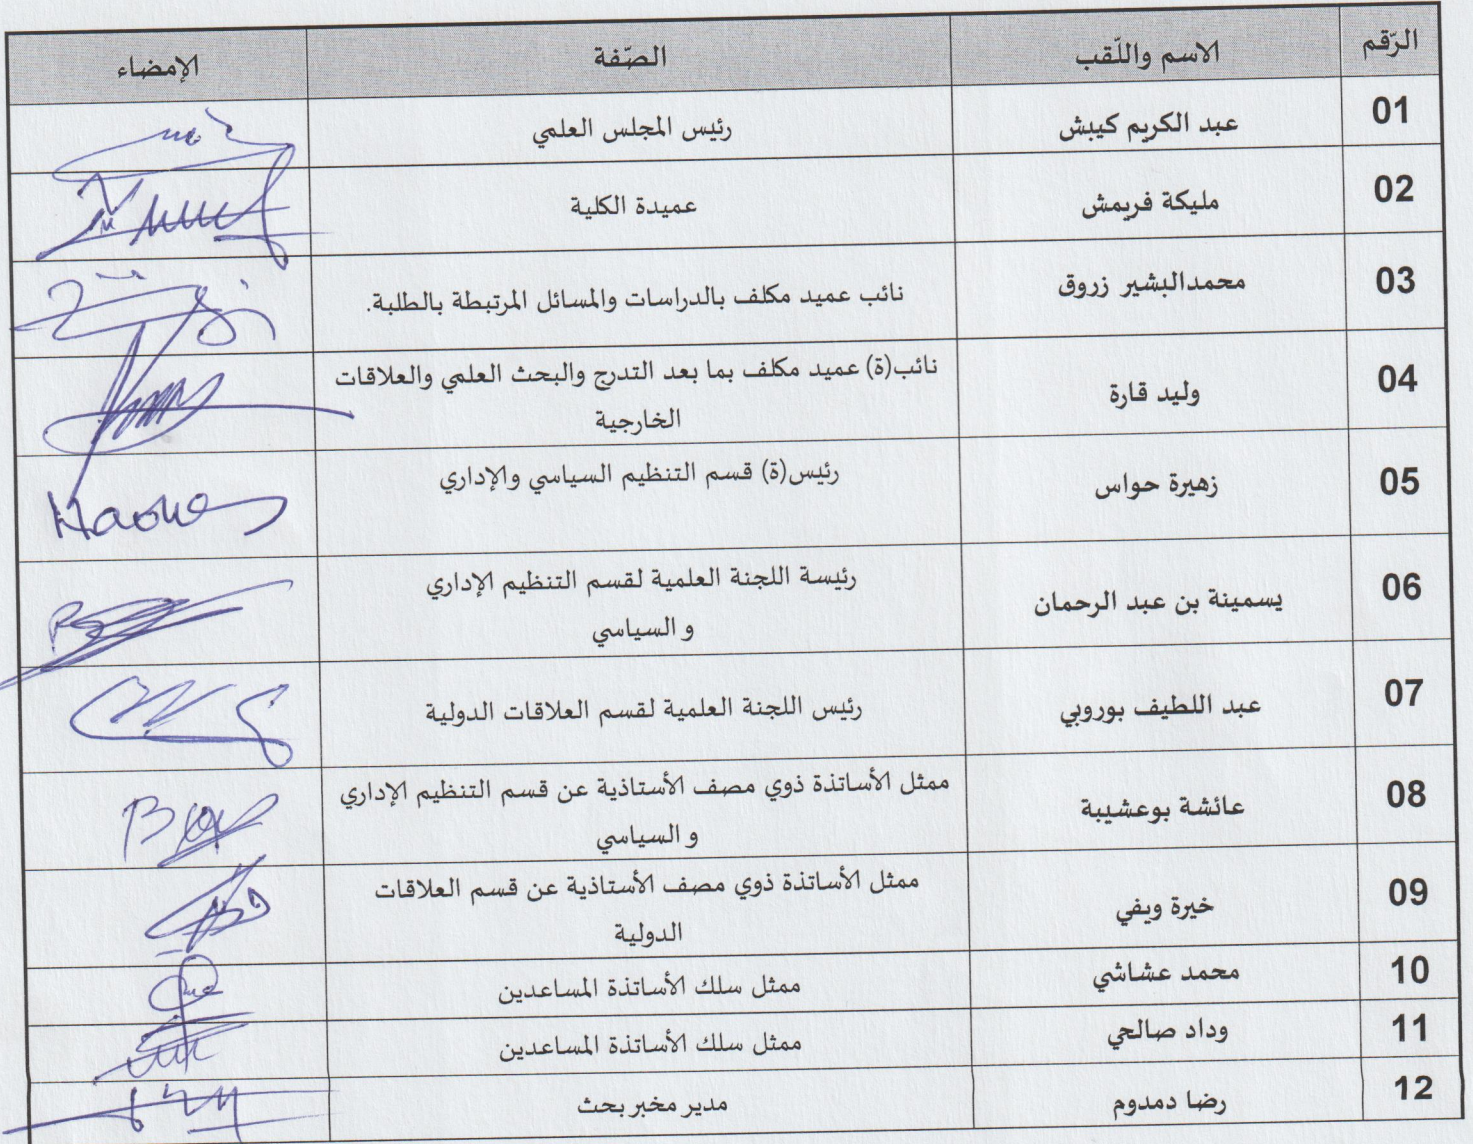 الرّقم الاسم واللّقب الصّفة الإمضاء
01 عبد الكريم كيبش رئيس المجلس العلمي
02 مليكة فريمش عميدة الكلية
03 محمدالبشير زروق نائب عميد مكلف بالدراسات والمسائل المرتبطة بالطلبة.
04 وليد قارة نائب(ة) عميد مكلف بما بعد التدرج والبحث العلمي والعلاقات
الخارجية
05 زهيرة حواس رئيس(ة) قسم التنظيم السياسي والإداري
06 يسمينة بن عبد الرحمان رئيسة اللجنة العلمية لقسم التنظيم الإداري
و السياسي
07 عبد اللطيف بوروبي رئيس اللجنة العلمية لقسم العلاقات الدولية
08 عائشة بوعشيبة ممثل الأساتذة ذوي مصف الأستاذية عن قسم التنظيم الإداري
و السياسي
09 خيرة ويفي ممثل الأساتذة ذوي مصف الأستاذية عن قسم العلاقات
الدولية
10 محمد عشاشي ممثل سلك الأساتذة المساعدين
11 وداد صالحي ممثل سلك الأساتذة المساعدين
12 رضا دمدوم مدير مخبر بحث